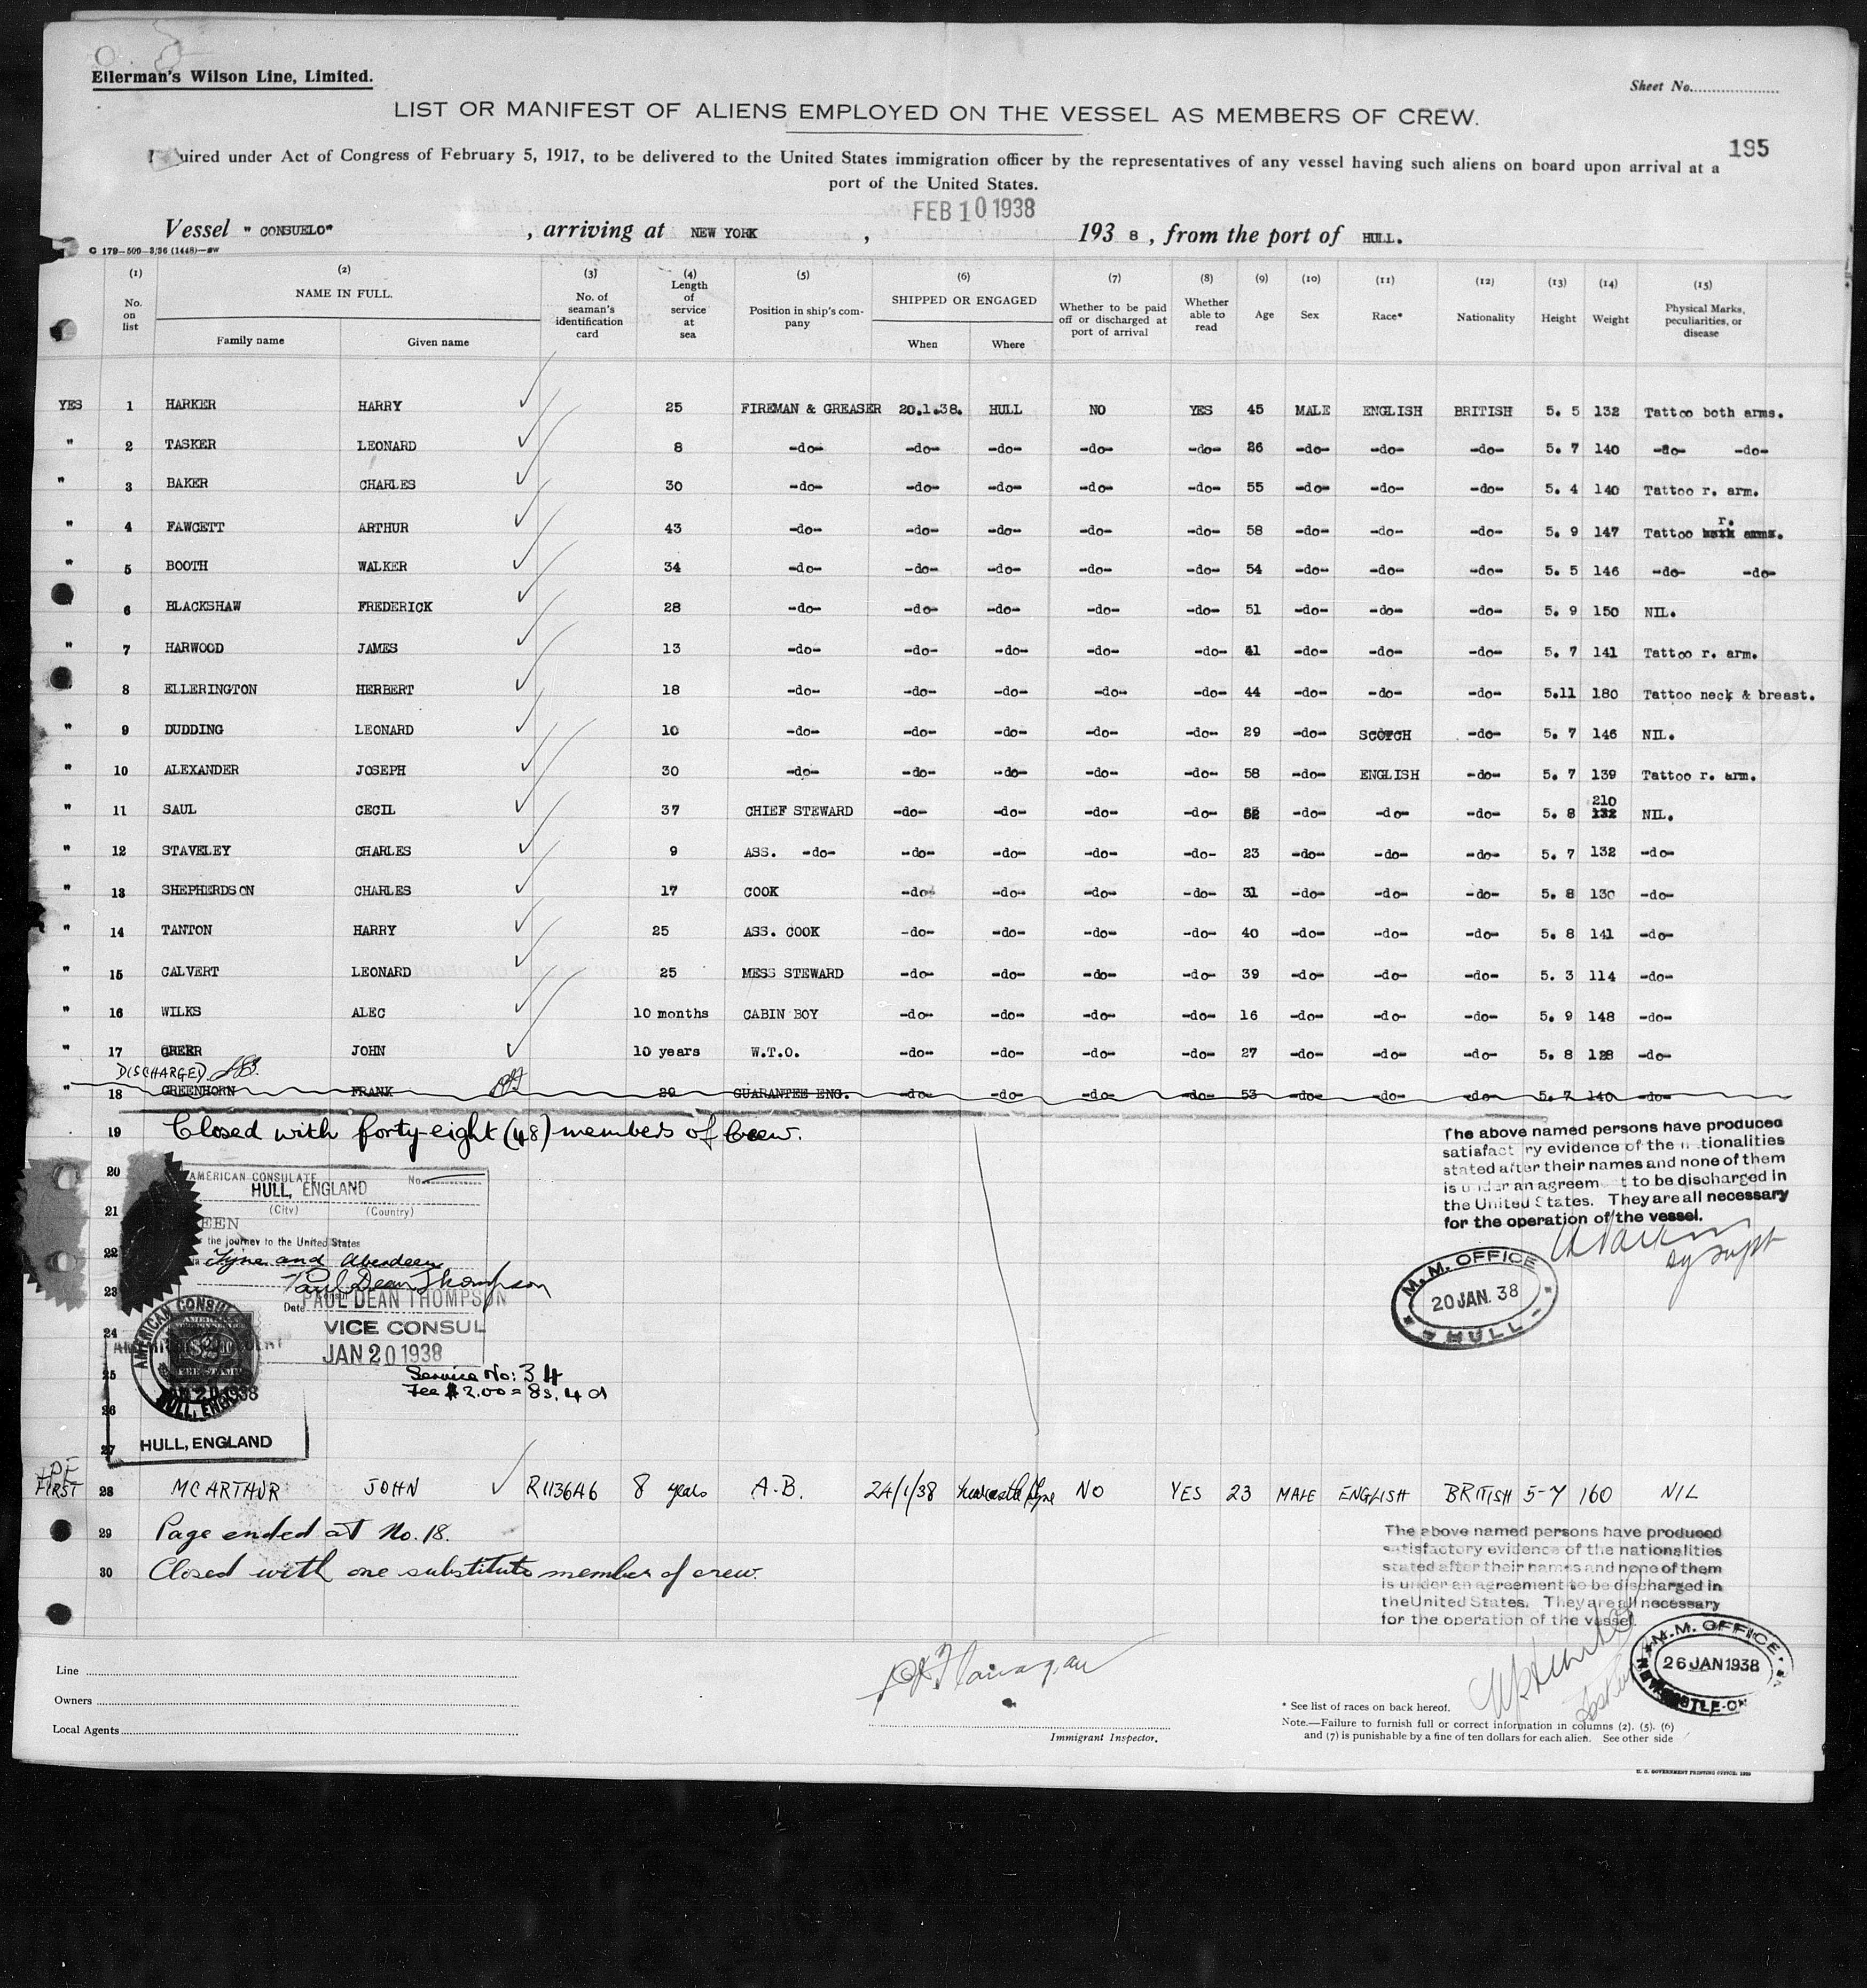 Ellerman's Wilson Line, Limited.
Sheet No.
LIST OR MANIFEST OF ALIENS EMPLOYED ON THE VESSEL AS MEMBERS OF CREW.
195
uired under Act of Congress of February 5, 1917, to be delivered to the United States immigration officer by the representatives of any vessel having such aliens on board upon arrival at a
port of the United States.
FEB 10 1938
Vessel "CONSUELO", arriving at NEW YORK, 193 8, from the port of HULL.
C 179-500-3/36 (1448)-SW
(1) (2) (3) (4) (5) (6) (7) (8) (9) (10) (11) (12) (13) (14) (15)
No. on list NAME IN FULL. Family name Given name No. of seaman's identification card Length of service at sea Position in ship's company SHIPPED OR ENGAGED When Where Whether to be paid off or discharged at port of arrival Whether able to read Age Sex Race* Nationality Height Weight Physical Marks, peculiarities, or disease
YES 1 HARKER HARRY 25 FIREMAN & GREASER 20.1.38. HULL NO YES 45 MALE ENGLISH BRITISH 5. 5 132 Tattoo both arms.
" 2 TASKER LEONARD 8 -do- -do- -do- -do- -do- 26 -do- -do- -do- 5. 7 140 -do- -do-
" 3 BAKER CHARLES 30 -do- -do- -do- -do- -do- 55 -do- -do- -do- 5. 4 140 Tattoo r. arm.
" 4 FAWCETT ARTHUR 43 -do- -do- -do- -do- -do- 58 -do- -do- -do- 5. 9 147 Tattoo r. arm.
" 5 BOOTH WALKER 34 -do- -do- -do- -do- -do- 54 -do- -do- -do- 5. 5 146 -do- -do-
" 6 BLACKSHAW FREDERICK 28 -do- -do- -do- -do- -do- 51 -do- -do- -do- 5. 9 150 NIL.
" 7 HARWOOD JAMES 13 -do- -do- -do- -do- -do- 41 -do- -do- -do- 5. 7 141 Tattoo r. arm.
" 8 ELLERINGTON HERBERT 18 -do- -do- -do- -do- -do- 44 -do- -do- -do- 5.11 180 Tattoo neck & breast.
" 9 DUDDING LEONARD 10 -do- -do- -do- -do- -do- 29 -do- SCOTCH -do- 5. 7 146 NIL.
" 10 ALEXANDER JOSEPH 30 -do- -do- -do- -do- -do- 58 -do- ENGLISH -do- 5. 7 139 Tattoo r. arm.
" 11 SAUL CECIL 37 CHIEF STEWARD -do- -do- -do- -do- 52 -do- -do- -do- 5. 8 210 132 NIL.
" 12 STAVELEY CHARLES 9 ASS. -do- -do- -do- -do- -do- 23 -do- -do- -do- 5. 7 132 -do-
" 13 SHEPHERDSON CHARLES 17 COOK -do- -do- -do- -do- 31 -do- -do- -do- 5. 8 130 -do-
" 14 TANTON HARRY 25 ASS. COOK -do- -do- -do- -do- 40 -do- -do- -do- 5. 8 141 -do-
" 15 CALVERT LEONARD 25 MESS STEWARD -do- -do- -do- -do- 39 -do- -do- -do- 5. 3 114 -do-
" 16 WILKS ALEC 10 months CABIN BOY -do- -do- -do- -do- 16 -do- -do- -do- 5. 9 148 -do-
" 17 GREER JOHN 10 years W.T.O. -do- -do- -do- -do- 27 -do- -do- -do- 5. 8 128 -do-
DISCHARGED
" 18 GREENHORN FRANK 29 GUARANTEE ENG. -do- -do- -do- -do- 53 -do- -do- -do- 5. 7 140 -do-
19 Closed with forty-eight (48) members of Crew.
The above named persons have produced
satisfact ry evidence of the n tionalities
stated after their names and none of them
is under an agreem t to be discharged in
the United States. They are all necessary
for the operation of the vessel.
20 AMERICAN CONSULATE No.
HULL, ENGLAND
21 (City) (Country)
EEN
the journey to the United States
22 Tyne and Aberdeen
Paul Dean Thompson
23 Date PAUL DEAN THOMPSON
24 VICE CONSUL
JAN 20 1938
25 Service No: 34
Fee $2.00 = 8s. 4d
26
27
AMERICAN CONSULATE
JAN 20 1938
HULL, ENGLAND
HULL, ENGLAND
M. M. OFFICE
20 JAN. 38
HULL
FIRST 28 MCARTHUR JOHN R113646 8 years A.B. 24/1/38 Newcastle/Tyne NO YES 23 MALE ENGLISH BRITISH 5-7 160 NIL
29 Page ended at No. 18.
30 Closed with one substitute member of crew.
The above named persons have produced
satisfactory evidence of the nationalities
stated after their names and none of them
is under an agreement to be discharged in
the United States. They are all necessary
for the operation of the vessel.
M.M. OFFICE
26 JAN 1938
NEWCASTLE-ON
Line
Owners
Local Agents
Flanagan
Immigrant Inspector.
* See list of races on back hereof.
Note.—Failure to furnish full or correct information in columns (2), (5), (6)
and (7) is punishable by a fine of ten dollars for each alien. See other side
U. S. GOVERNMENT PRINTING OFFICE: